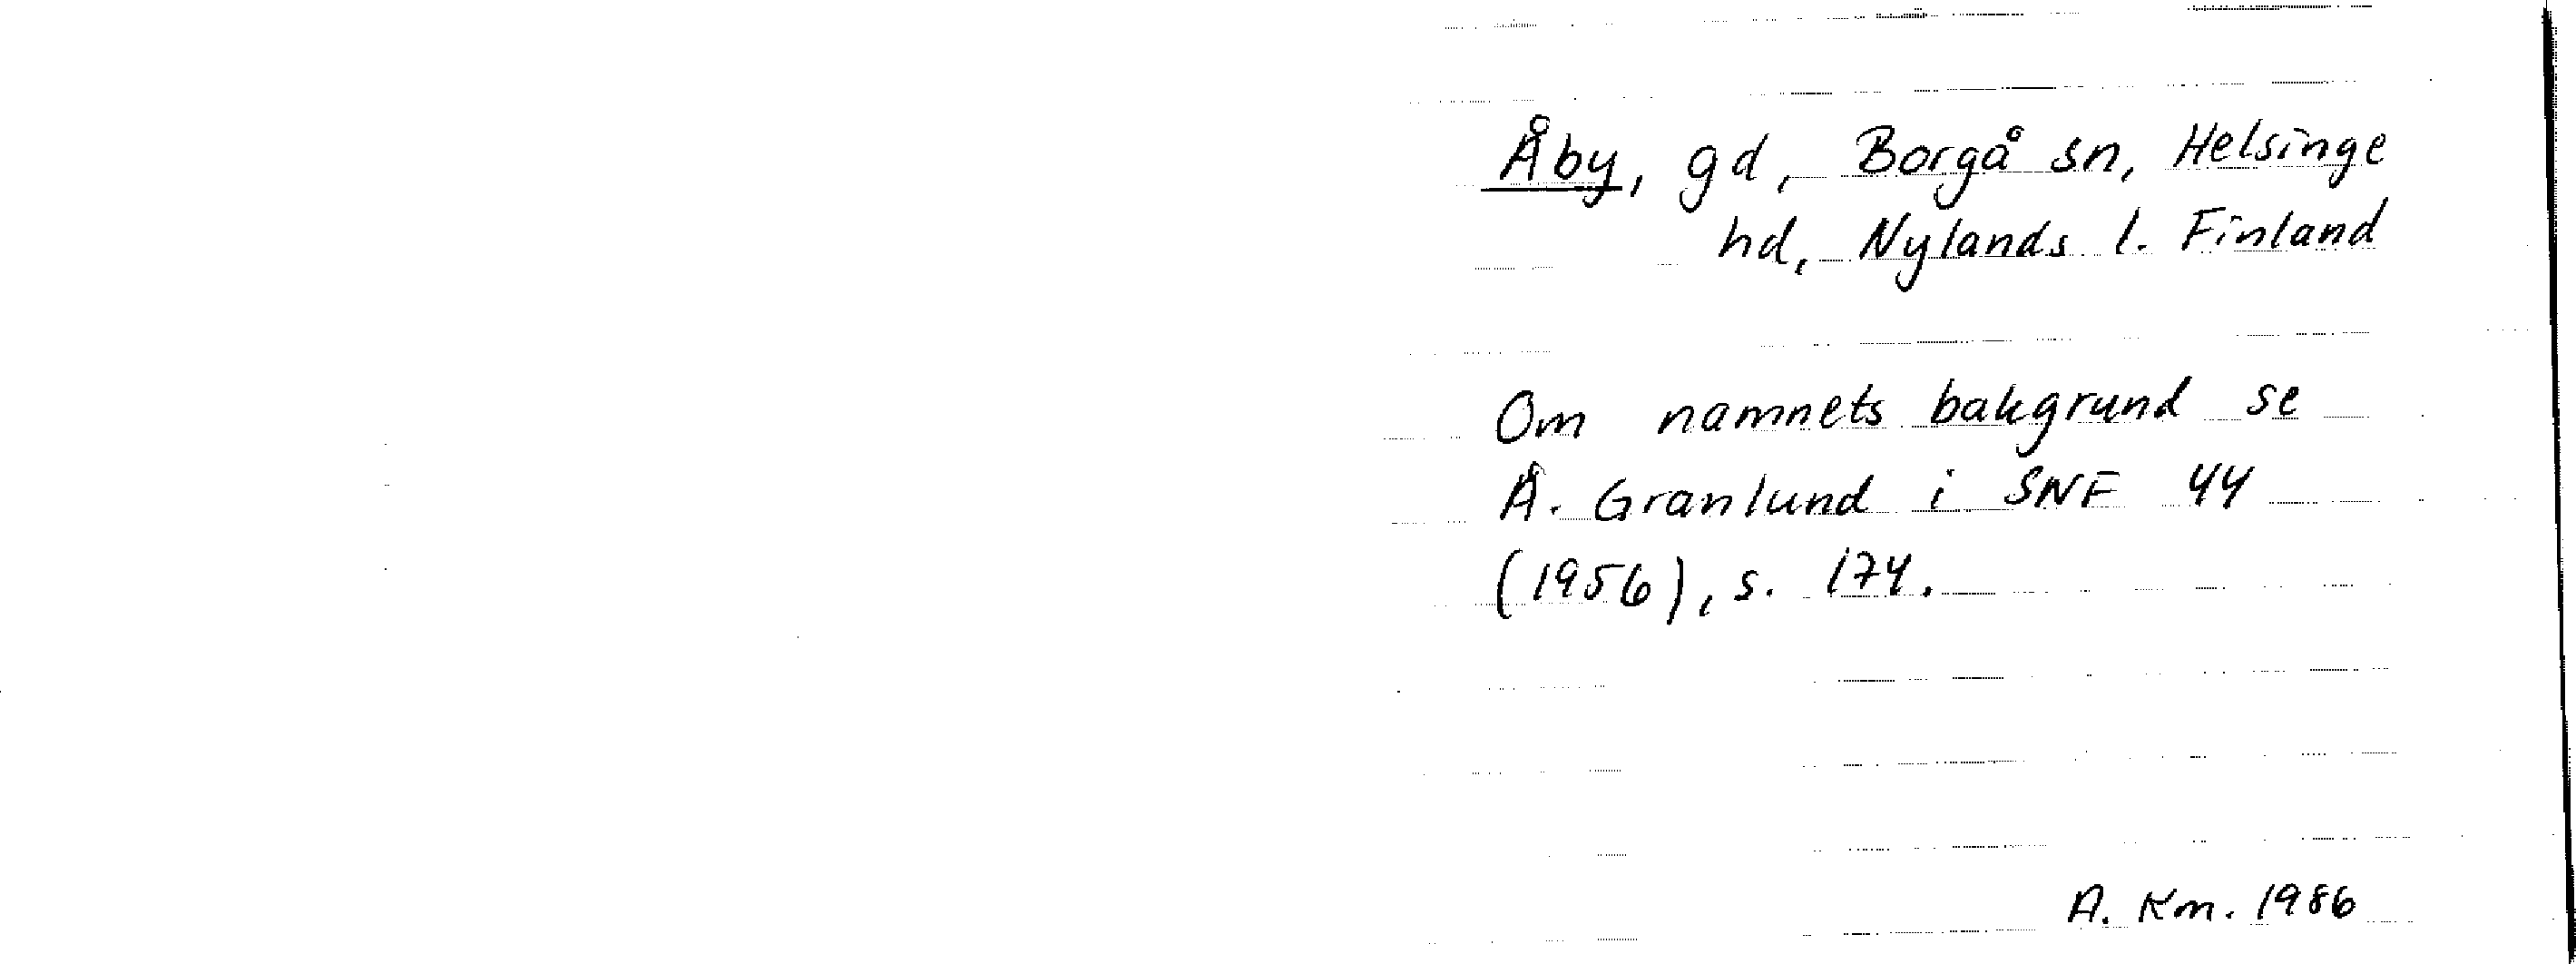 Åby, gd, Borgå sn, Helsinge
hd, Nylands l. Finland
Om namnets bakgrund se
Å. Granlund i SNF 44
(1956), s. 174.
A. Km. 1986